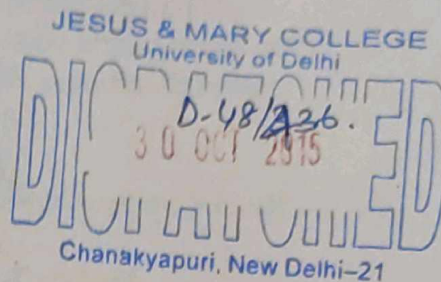 JESUS & MARY COLLEGE
University of Delhi
DISPATCHED
D-48/A26.
30 OCT 2015
Chanakyapuri, New Delhi–21